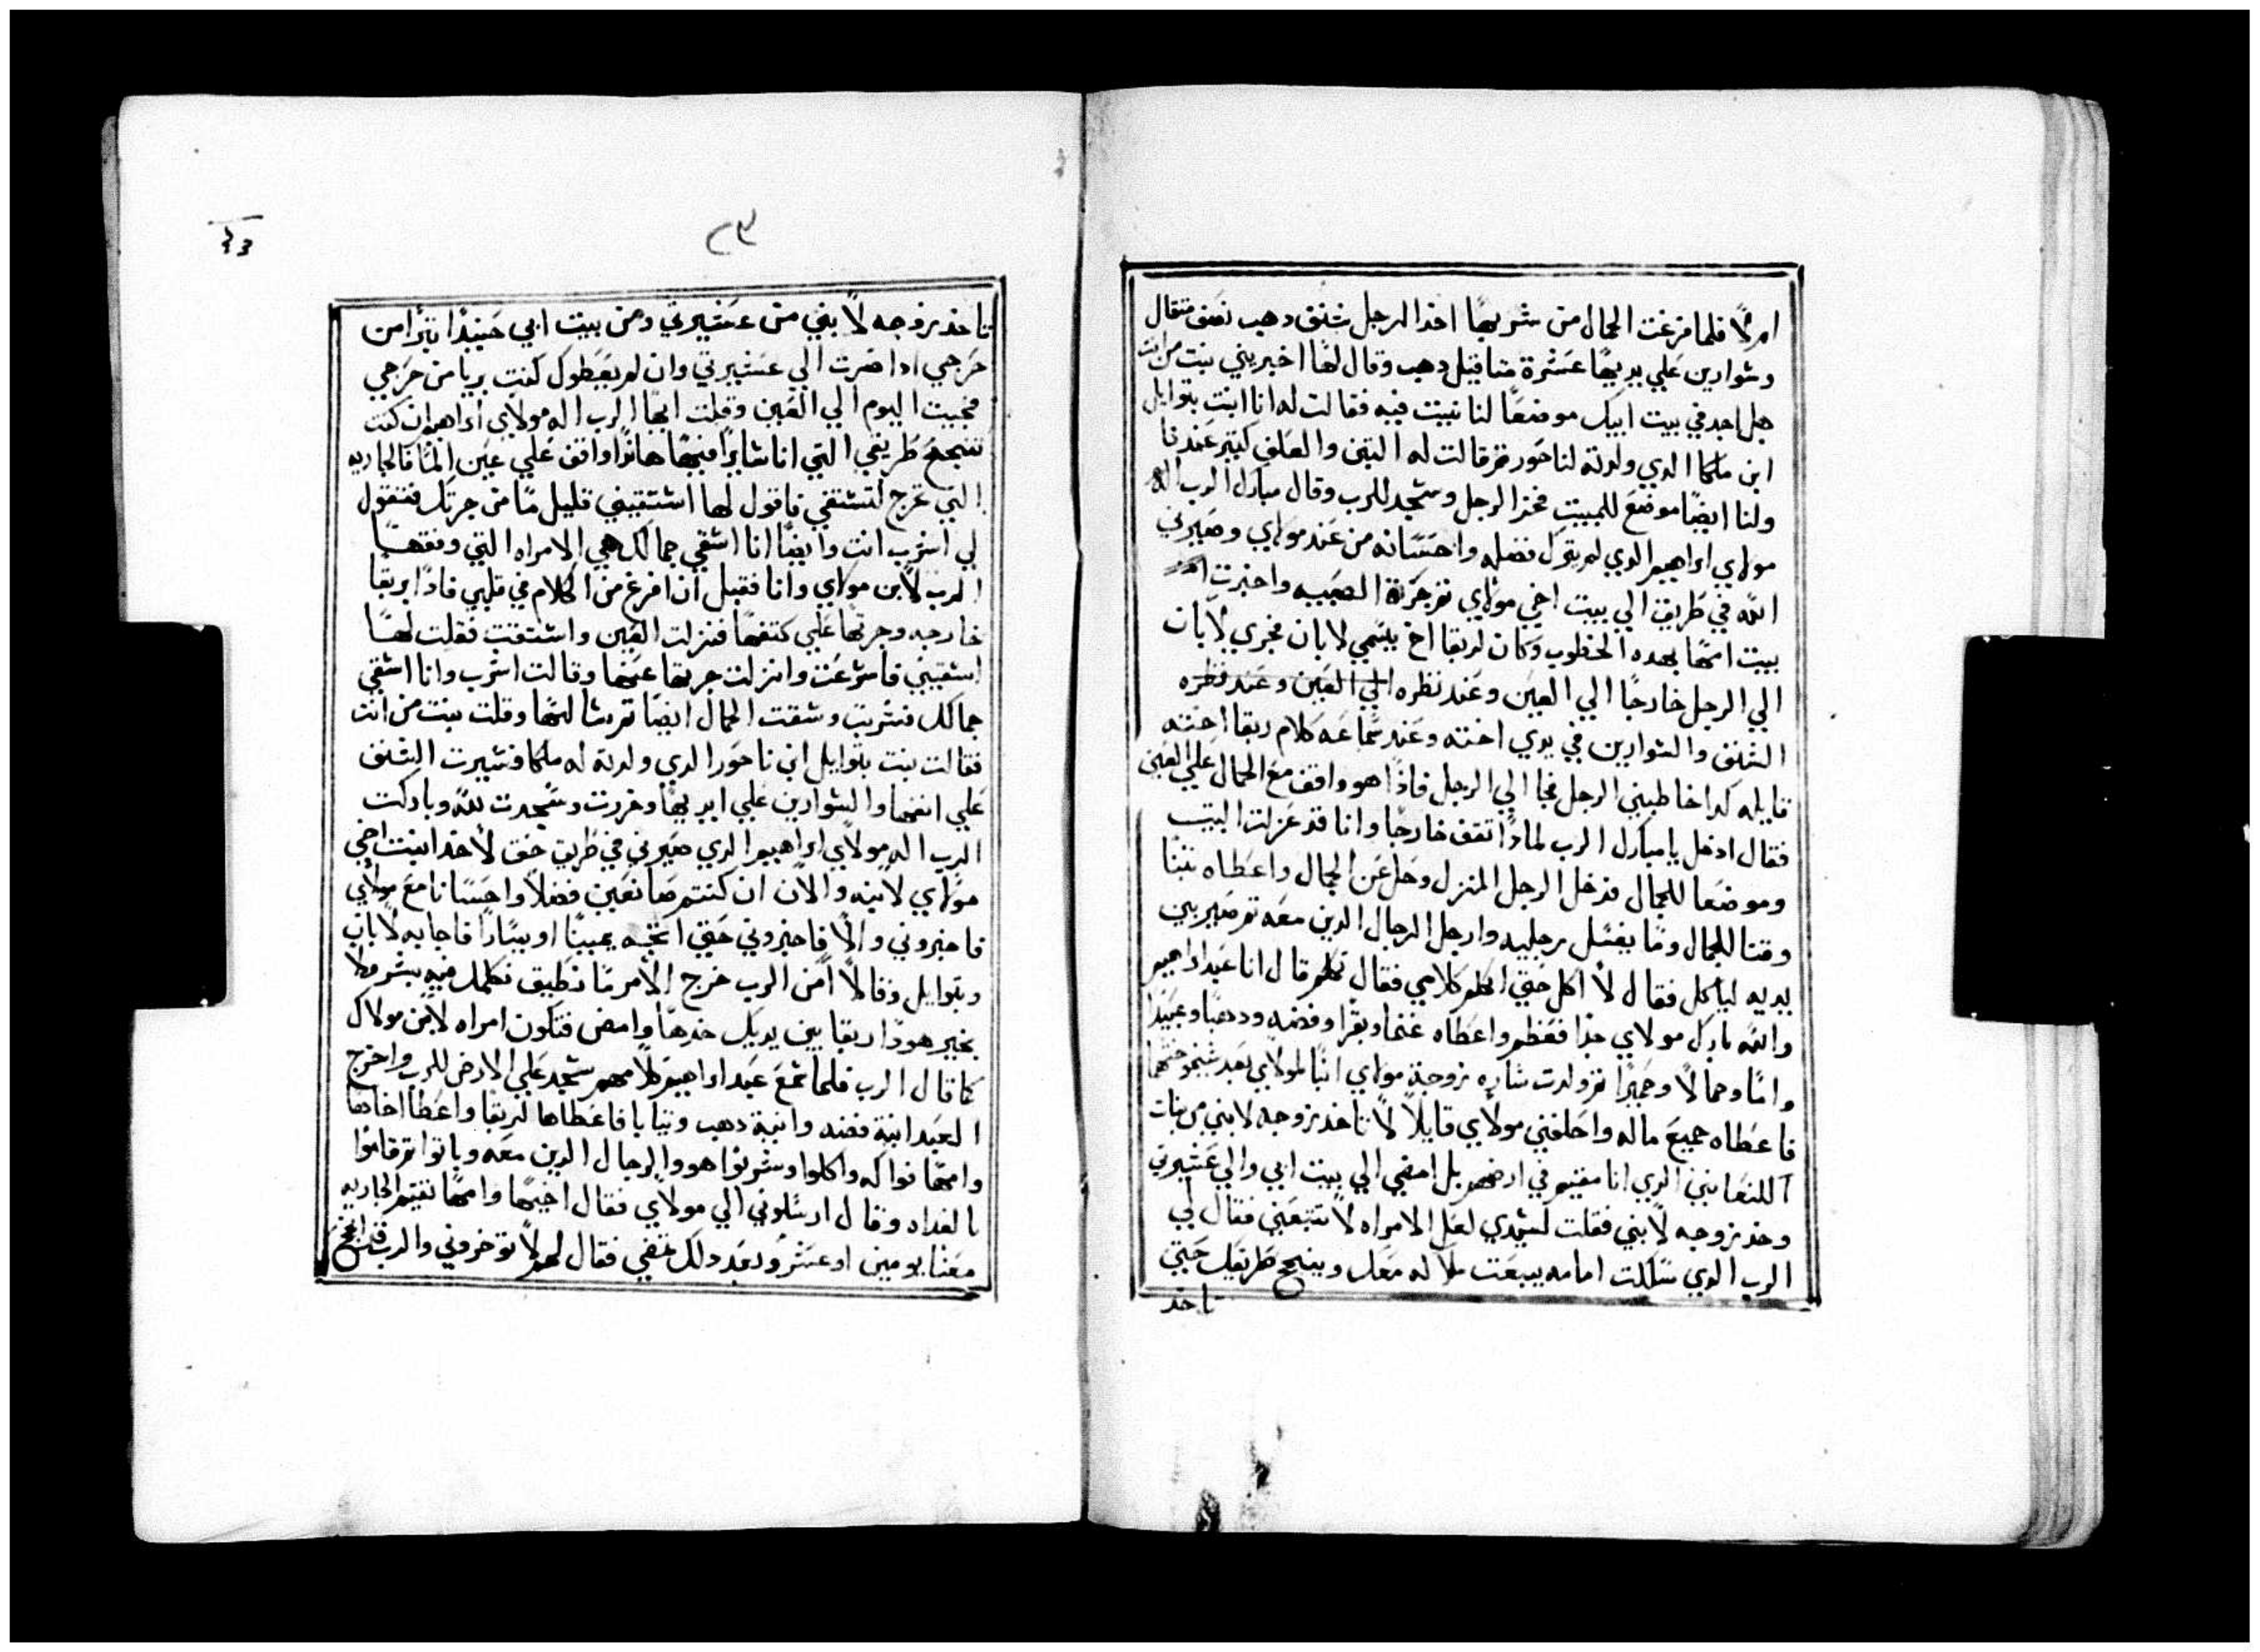 امرلا فلما فرغت الجمال من شربها اخد الرجل شنف دهب نصف متقال
وسوارين علي يديها عشرة متاقيل دهب وقال لها اخبريني بنت من انت
هل اجد في بيت ابيك موضعا لنا نبيت فيه فقالت له انا ابنت بتوايل
ابن ملكا الدي ولدته لناحور تم قالت له التبن والعلف كتير عندنا
ولنا ايضا موضع للمبيت فخر الرجل وسجد للرب وقال مبارك الرب اله
مولاي ابراهيم الدي لم يترك فضله واحسانه من عند مولاي وصيرني
الله في طريق الي بيت اخي مولاي تم جرت الصبيه واخبرت
بيت امها بهده الخطوب وكان لربقا اخ يسمي لابان فجري لابان
الي الرجل خارجا الي العين وعند نظره الي العين وعند نظره
الشنف والسوارين في يدي اخته وعند سماعه كلام ربقا اخته
قايله كدا خاطبني الرجل فجا الي الرجل فادا هو واقف مع الجمال علي العين
فقال ادخل يا مبارك الرب لمادا تقف خارجا وانا قد عزلت البيت
وموضعا للجمال فدخل الرجل المنزل وحل عن الجمال واعطاه تبنا
وقتا للجمال وما يغسل رجليه وارجل الرجال الدين معه تم صير بين
يديه لياكل فقال لا اكل حتي اتكلم كلامي فقال تكلم قال انا عبد ابراهيم
والله بارك مولاي جدا فعظم واعطاه غنما وبقرا وفضه ودهبا وعبيدا
واما وجمالا وحميرا تم ولدت ساره زوجة مولاي ابنا لمولاي بعد شيخوختها
فاعطاه جميع ماله واحلفني مولاي قايلا لا تاخد زوجه لابني من بنات
الكنعانيين الدي انا مقيم في ارضهم بل امضي الي بيت ابي والي عشيرتي
وخد زوجه لابني فقلت لسيدي لعل الامراه لا تتبعني فقال لي
الرب الدي سلكت امامه يبعت ملاكه معك وينجح طريقك حتي
تاخد
٢٣
تاخد زوجه لابني من عشيرتي ومن بيت ابي حينيدا تبرا من
حرجي ادا صرت الي عشيرتي وان لم يعطوك كنت بريا من حرجي
فجيت اليوم الي العين وقلت ايها الرب اله مولاي ابراهيم ان كنت
تنجح طريقي التي انا سايرا فيها هاندا واقف علي عين الما فالجاريه
التي تخرج لتستقي فاقول لها استقيني قليل ما من جرتك فتقول
لي اشرب انت وايضا انا اسقي جمالك هي الامراه التي وفقها
الرب لابن مولاي وانا فقبل ان افرغ من الكلام في قلبي فادا بربقا
خارجه وجرتها علي كتفها فنزلت العين واستقت فقلت لها
اسقيني فاسرعت وانزلت جرتها عنها وقالت اشرب وانا اسقي
جمالك فشربت وسقت الجمال ايضا تم سالتها وقلت بنت من انت
فقالت بنت بتوايل ابن ناحور الدي ولدته له ملكا فصيرت الشنف
علي انفها والسوارين علي ايديها وخررت وسجدت لله وباركت
الرب اله مولاي ابراهيم الدي صيرني في طريق حق لاخد ابنت اخي
مولاي لابنه والان ان كنتم صانعين فضلا واحسانا مع مولاي
فاخبروني والا فاخبروني حتي اتجه يمينا او يسارا فاجابه لابان
وبتوايل وقالا من الرب خرج الامر ما نطيق نكلمك فيه بشر ولا
بخير هودا ربقا بين يديك خدها وامض فتكون امراه لابن مولاك
كما قال الرب فلما سمع عبد ابراهيم كلامهم سجد علي الارض للرب واخرج
العبد انية فضه وانية دهب وتيابا فاعطاها لربقا واعطا اخاها
وامها فواكه واكلوا وشربوا هو والرجال الدين معه وباتوا تم قاموا
بالغداه وقال ارسلوني الي مولاي فقال اخيها وامها تقيم الجاريه
معنا يومين او عشر وبعد دلك تمضي فقال لهم لا توخروني والرب قد انجح